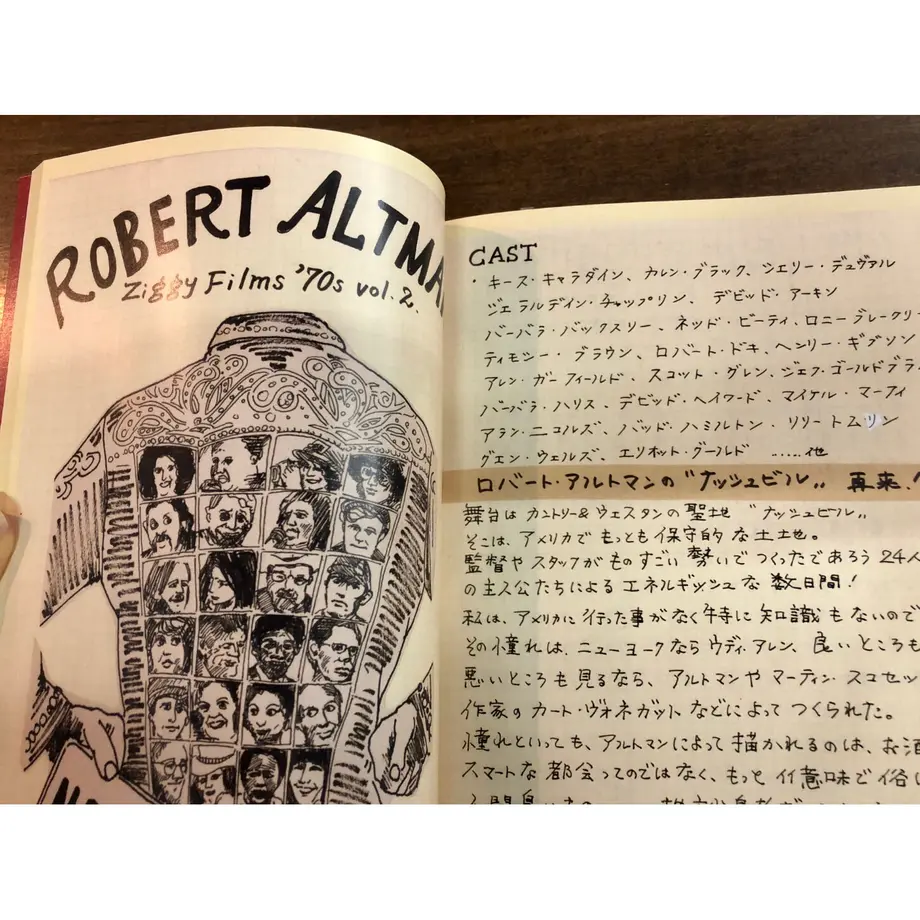 ROBERT ALTMA
Ziggy Films '70s vol.2.
CAST
・キース・キャラダイン、カレン・ブラック、シェリー・デュヴァル
ジェラルディン・チャップリン、デビッド・アーキン
バーバラ・バックスリー、ネッド・ビーティ、ロニー・ブレークリー
ティモシー・ブラウン、ロバート・ドキ、ヘンリー・ギブソン
アレン・ガーフィールド、スコット・グレン、ジェフ・ゴールドブラ
バーバラ・ハリス、デビッド・ヘイワード、マイケル・マーフィ
アラン・ニコルズ、バッド・ハミルトン・リリートムリン
グエン・ウェルズ、エリオット・グールド ……他
ロバート・アルトマンの"ナッシュビル" 再来、
舞台はカントリー&ウェスタンの聖地 "ナッシュビル"
そこは、アメリカでもっとも保守的な土地。
監督やスタッフがものすごい勢いでつくったであろう24人
の主人公たちによるエネルギッシュな数日間!
私は、アメリカに行った事がなく特に知識もないので
その憧れは、ニューヨークならウディ・アレン、良いところも
悪いところも見るなら、アルトマンやマーティン・スコセッ
作家のカート・ヴォネガットなどによってつくられた。
憧れといっても、アルトマンによって描かれるのは、お洒
スマートな都会ってのではなく、もっと什意味で俗